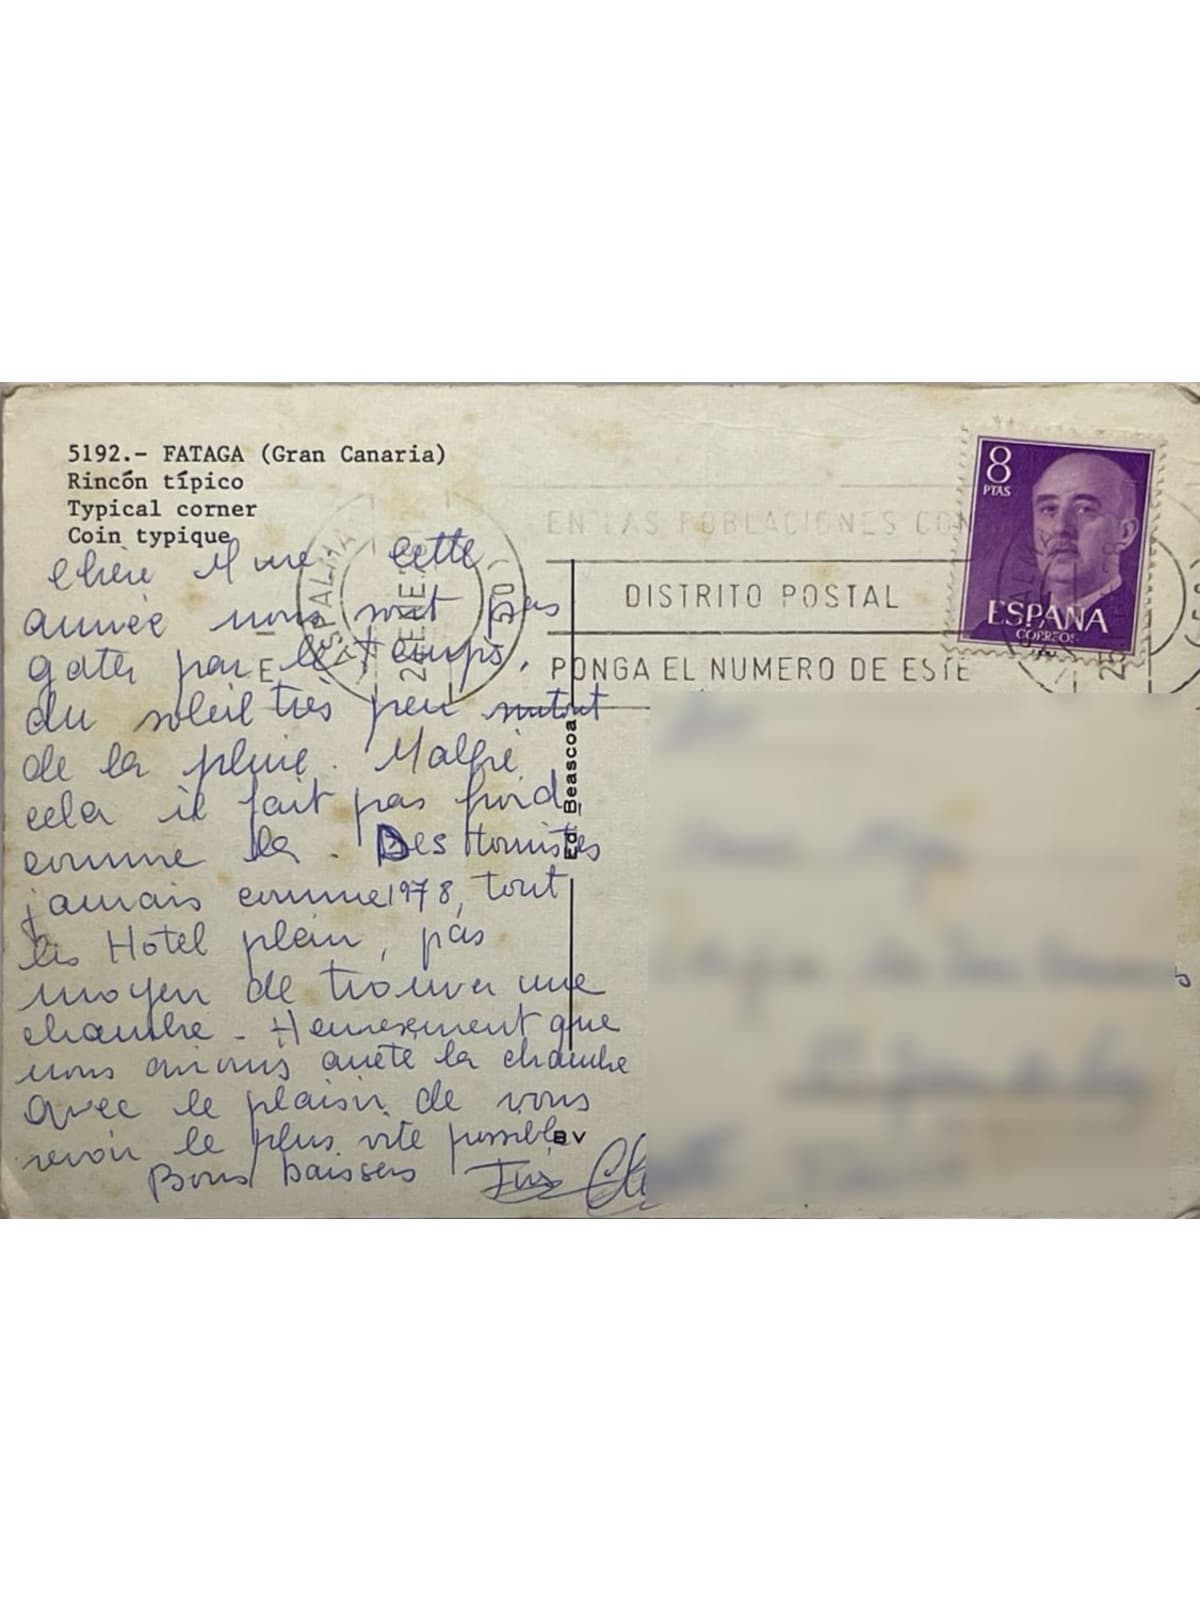 5192.- FATAGA (Gran Canaria)
Rincón típico
Typical corner
Coin typique
EN LAS POBLACIONES CON
DISTRITO POSTAL
PONGA EL NUMERO DE ESTE
8
PTAS
ESPAÑA
CORREOS
Chère Mme Cette
année nous sont pas
gater par le temps,
du soleil très peu surtout
de la pluie. Malgré
cela il fait pas froid
comme la. Des Touristes
jamais comme 1978, tout
les Hotel plein, pas
moyen de trouver une
chambre - Heureusement que
nous avions arrete la chambre
avec le plaisir de vous
revoir le plus vite possible
Bons baisers
Ed. Beascoa
BV